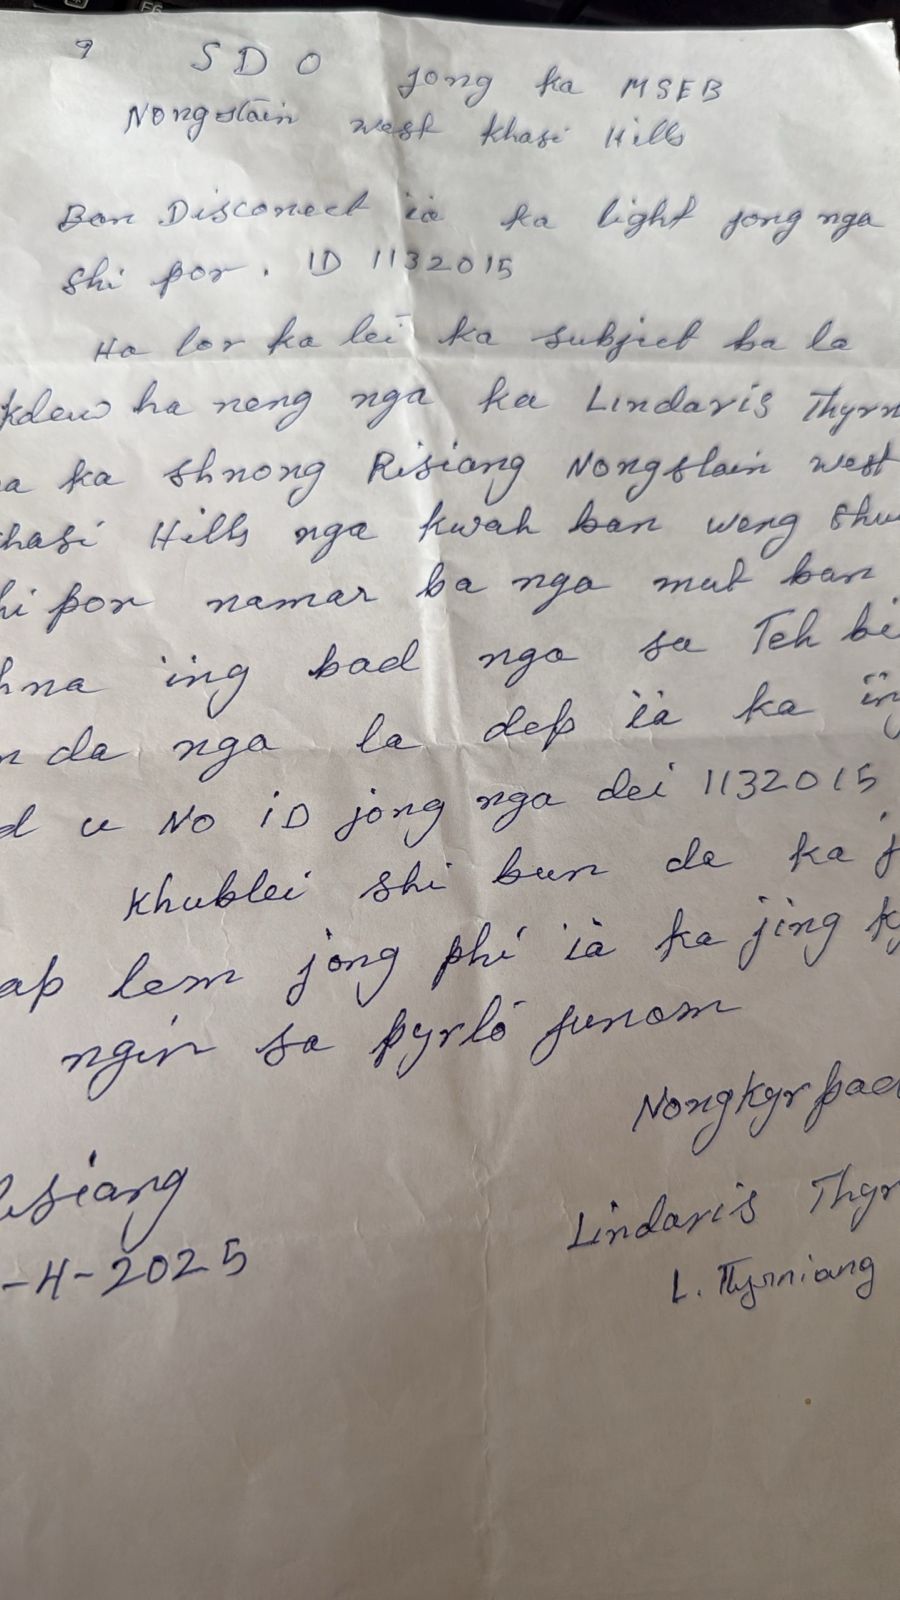 S D O jong ka MSEB
Nongstoin west Khasi Hills
Ban Disconect ia ka light jong nga
shi por. ID 1132015
Ha lor ka lei ka subject ba la
kdew ha neng nga ka Lindaris Thyrn
a ka shnong Risiang Nongstoin west
hasi Hills nga kwah ban weng shu
hi por namar ba nga mut ban
hna ing bad nga sa Teh bi
n da nga la dep ia ka ïn
d u No iD jong nga dei 1132015
Khublei shi bun da ka j
ap lem jong phi ia ka jing ky
ngin sa pyrlo junom
Nongkyrpad
siang
Lindaris Thyr
-4-2025
L. Thyrniang